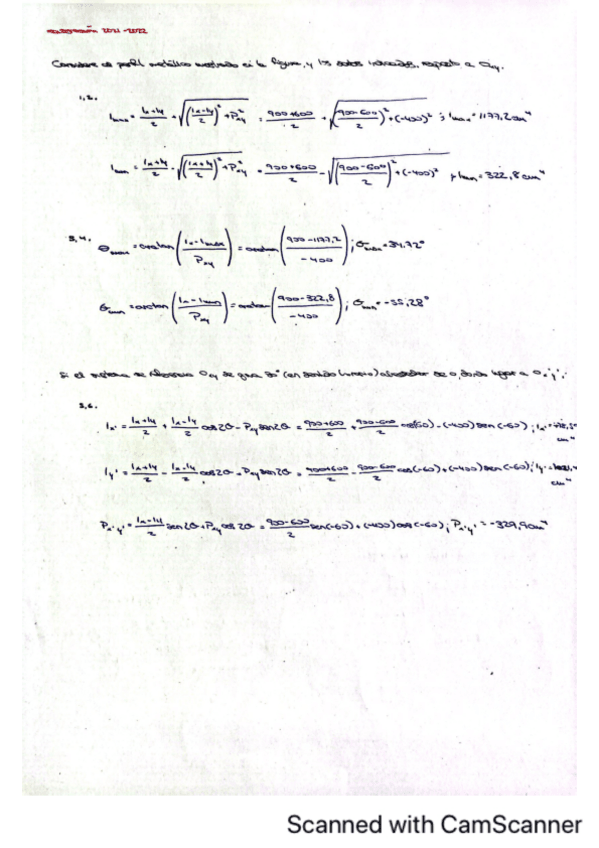 2021-2022
Considere el perfil metálico mostrado en la figura, y los datos indicados, respecto a Oxy.
1,2.
Imax = (Ix+Iy)/2 + √(((Ix-Iy)/2)² + Pxy²) = (900+600)/2 + √(((900-600)/2)² + (-400)²) ; Imax = 1177,2 cm⁴
Imin = (Ix+Iy)/2 - √(((Ix+Iy)/2)² + Pxy²) = (900+600)/2 - √(((900-600)/2)² + (-400)²) ; Imin = 322,8 cm⁴
3,4.
θmax = arctan((Ix-Imax)/Pxy) = arctan((900-1177,2)/-400) ; θmax = 34,72°
θmin = arctan((Ix-Imin)/Pxy) = arctan((900-322,8)/-400) ; θmin = -55,28°
Si el sistema de referencia Oxy se gira 30° (en sentido horario) alrededor de O, dando lugar a Ox'y'.
5,6.
Ix' = (Ix+Iy)/2 + (Ix-Iy)/2 cos2θ - Pxy sen2θ = (900+600)/2 + (900-600)/2 cos(60) - (-400) sen(-60) ; Ix' = cm⁴
Iy' = (Ix+Iy)/2 - (Ix-Iy)/2 cos2θ - Pxy sen2θ = (900+600)/2 - (900-600)/2 cos(-60) + (-400) sen(-60) ; Iy' = cm⁴
Px'y' = (Ix-Iy)/2 sen2θ + Pxy cos2θ = (900-600)/2 sen(-60) + (-400) cos(-60) ; Px'y' = -329,9 cm⁴
Scanned with CamScanner